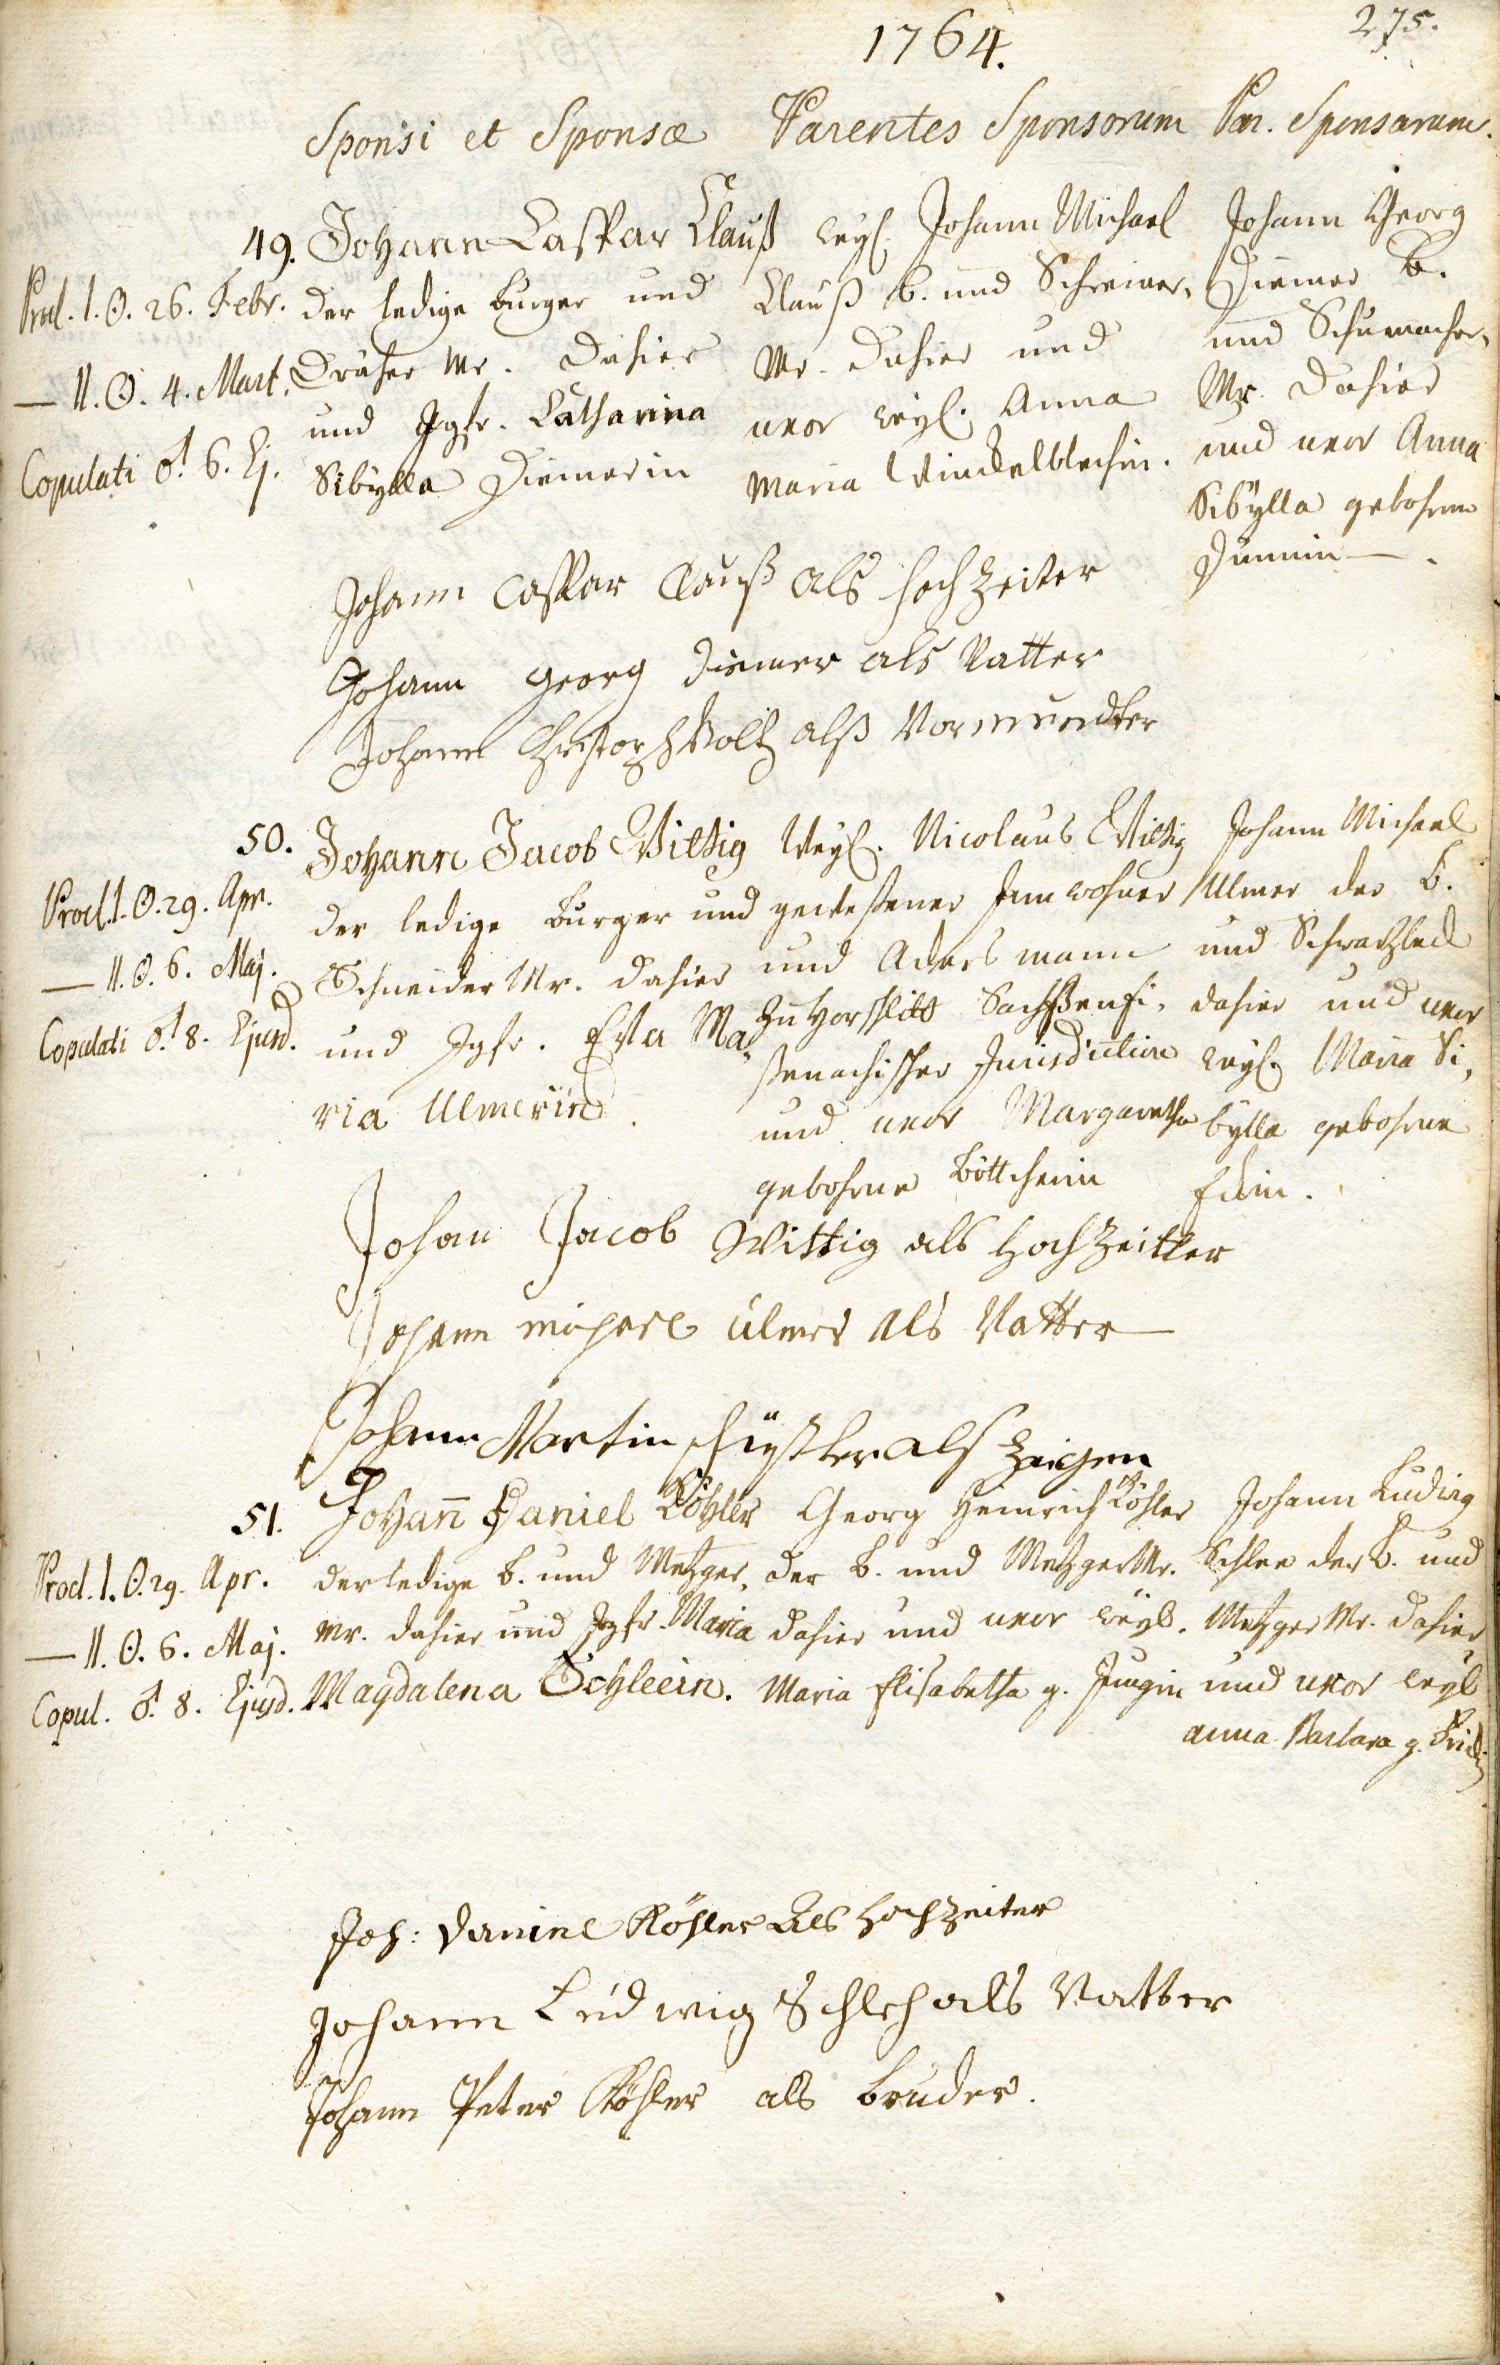 1764.
275.
Sponsi et Sponsæ
Parentes Sponsorum
Par. Sponsarum.
49.
Procl. 1. ☉. 26. Febr.
— II. ☉. 4. Mart.
Copulati ♂ 6. Ej.
Johann Caspar Clauß
der ledige Burger und
Dräher Mr. dahier
und Jgfr. Catharina
Sibylla Diemerin
weyl. Johann Michael
Clauß b. und Schreiner-
Mr. dahier und
uxor weyl. Anna
Maria Winckelblechin.
Johann Georg
Diemer b.
und Schumacher-
Mr. dahier
und uxor Anna
Sibylla gebohrne
Johann Caspar Clauß als Hochzeiter
Johann Georg Diemer als Vatter
Johann Christoph Voltz alß Vormundter
50.
Procl. 1. ☉. 29. Apr.
— II. ☉. 6. Maj.
Copulati ♂ 8. Ejusd.
Johann Jacob Wittig
der ledige Burger und
Schneider Mr. dahier
und Jgfr. Eva Ma-
ria Ulmerin.
Weyl. Nicolaus Wittig
geweßener Innwohner
und Ackersmann
zu Horschlitt Sachßen Ei-
ßenachischer Jurisdiction
und uxor Margaretha
gebohrne Böttcherin
Johann Michael
Ulmer der b.
und Schwartzbeck
dahier und uxor
weyl. Maria Si-
bylla gebohrne
Johan Jacob Wittig als Hochzeitter
Johann Michael Ulmer als Vatter
Johann Martin als Zeigen
51.
Procl. 1. ☉. 29. Apr.
— II. ☉. 6. Maj.
Copul. ♂ 8. Ejusd.
Johan̄ Daniel Köhler
der ledige b. und Metzger-
Mr. dahier und Jgfr. Maria
Magdalena Schleein.
Georg Heinrich Köhler
der b. und Metzger Mr.
dahier und uxor weyl.
Maria Elisabetha g. Jungin
Johann Ludwig
Schlee der b. und
Metzger Mr. dahier
und uxor weyl
anna Barbara g.
Joh: Daniel Köhler Als Hochzeiter
Johann Ludwig Schleh als Vatter
Johann Peter Köhler als Bruder.